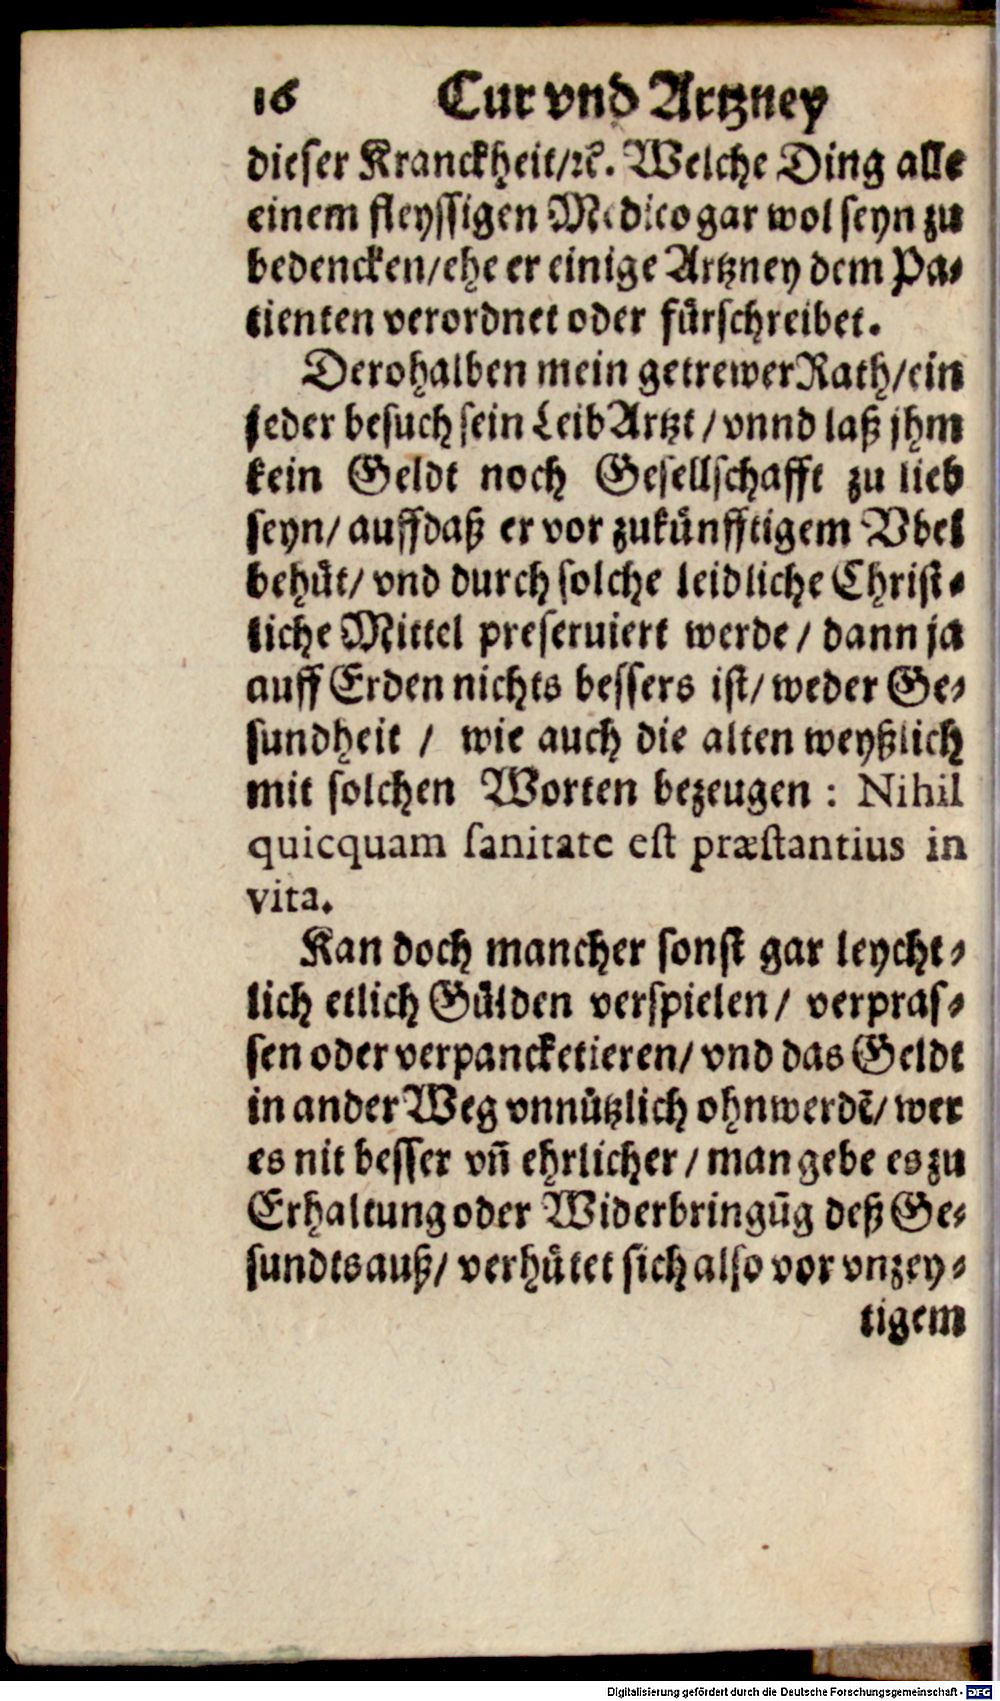 16 Cur vnd Artzney
dieser Kranckheit/ꝛc. Welche Ding alle
einem fleyssigen Medico gar wol seyn zu
bedencken/ehe er einige Artzney dem Pa-
tienten verordnet oder fürschreibet.
Derohalben mein getrewer Rath/ein
jeder besuch sein Leib Artzt/vnnd laß jhm
kein Geldt noch Gesellschafft zu lieb
seyn/auffdaß er vor zukünfftigem Vbel
behüt/vnd durch solche leidliche Christ-
liche Mittel preseruiert werde/dann ja
auff Erden nichts bessers ist/weder Ge-
sundheit / wie auch die alten weyßlich
mit solchen Worten bezeugen : Nihil
quicquam sanitate est præstantius in
vita.
Kan doch mancher sonst gar leycht-
lich etlich Gülden verspielen/ verpras-
sen oder verpancketieren/vnd das Geldt
in ander Weg vnnützlich ohnwerdē/wer
es nit besser vn̄ ehrlicher/man gebe es zu
Erhaltung oder Widerbringūg deß Ge-
sundts auß/verhütet sich also vor vnzey-
tigem
Digitalisierung gefördert durch die Deutsche Forschungsgemeinschaft - DFG